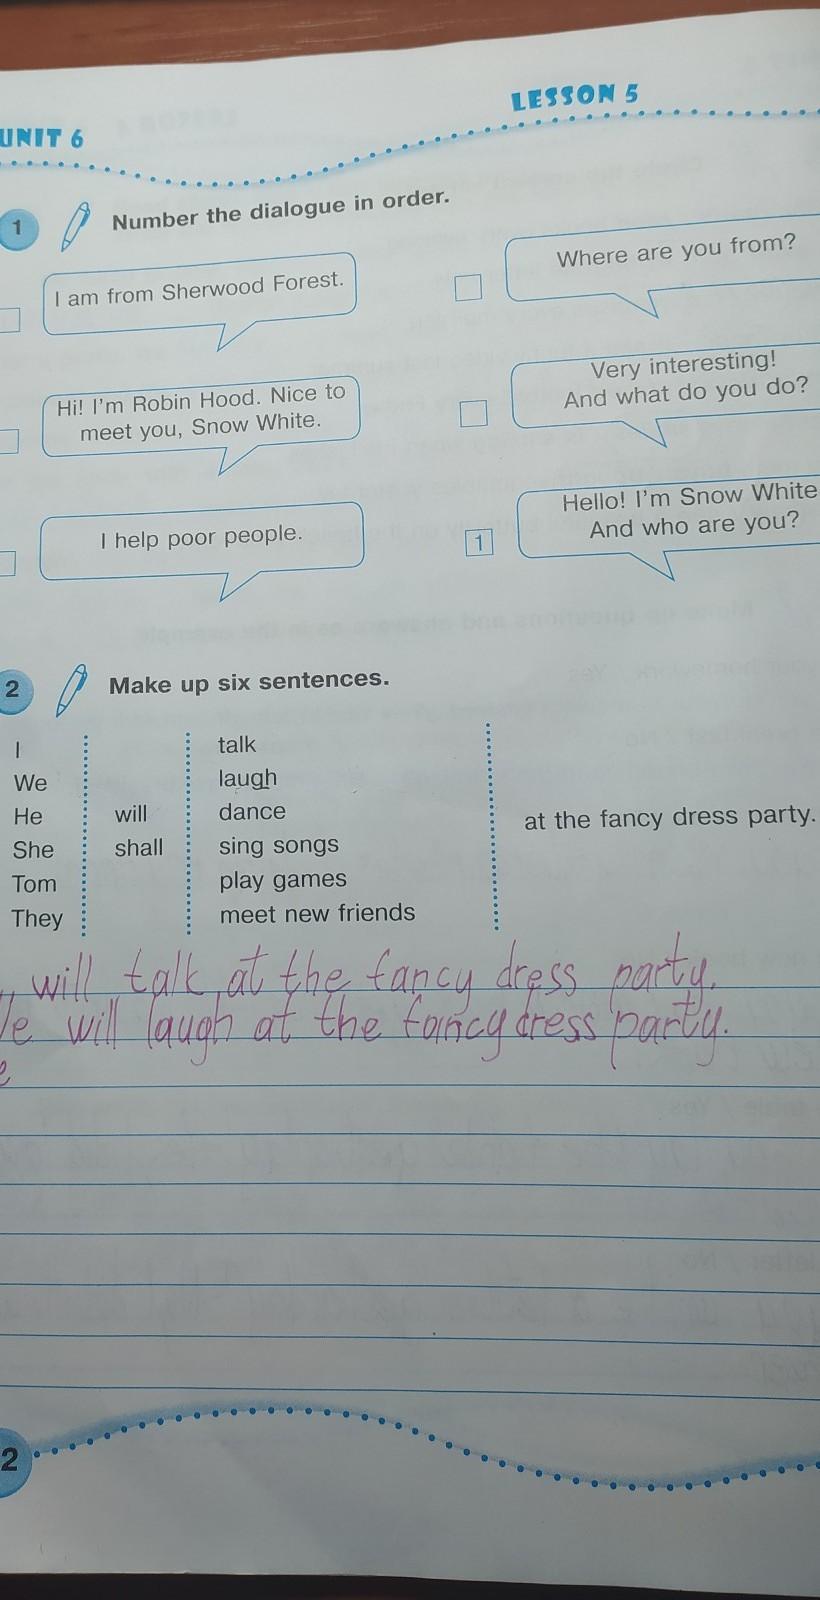 UNIT 6
LESSON 5
1
Number the dialogue in order.
I am from Sherwood Forest.
Where are you from?
Hi! I'm Robin Hood. Nice to
meet you, Snow White.
Very interesting!
And what do you do?
I help poor people.
1
Hello! I'm Snow White
And who are you?
2
Make up six sentences.
I
We
He
She
Tom
They
will
shall
talk
laugh
dance
sing songs
play games
meet new friends
at the fancy dress party.
will talk at the fancy dress party.
will laugh at the fancy dress party.
2